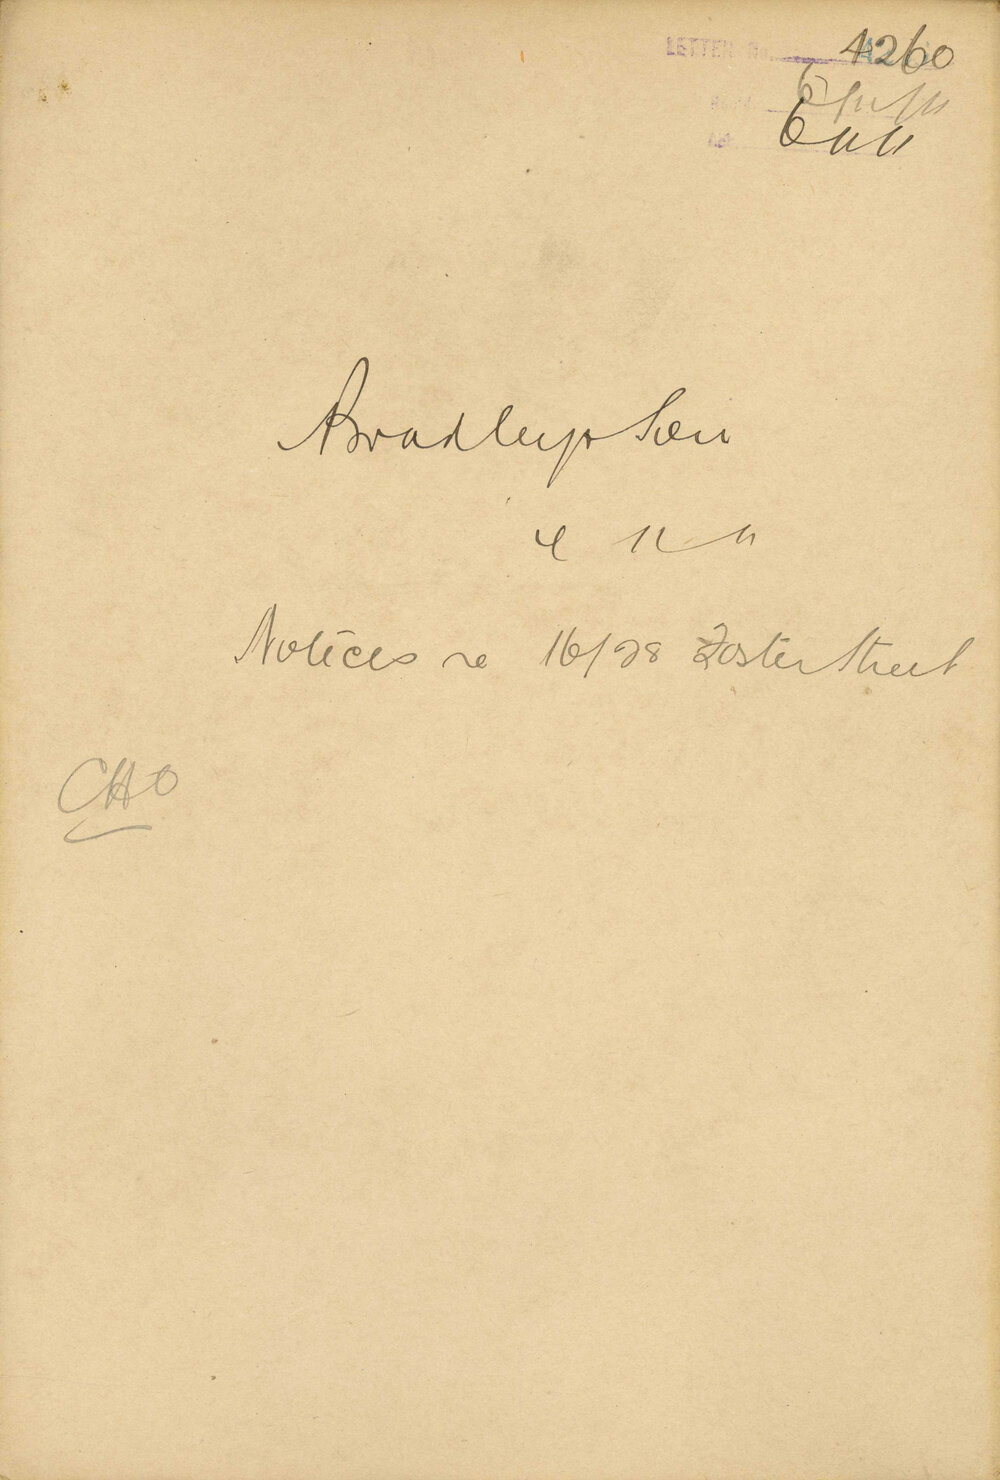 LETTER No. 4260
6/11/11
6 11 11
A Bradley & Son
4 11 11
Notices re 16/28 Foster Street
CHO